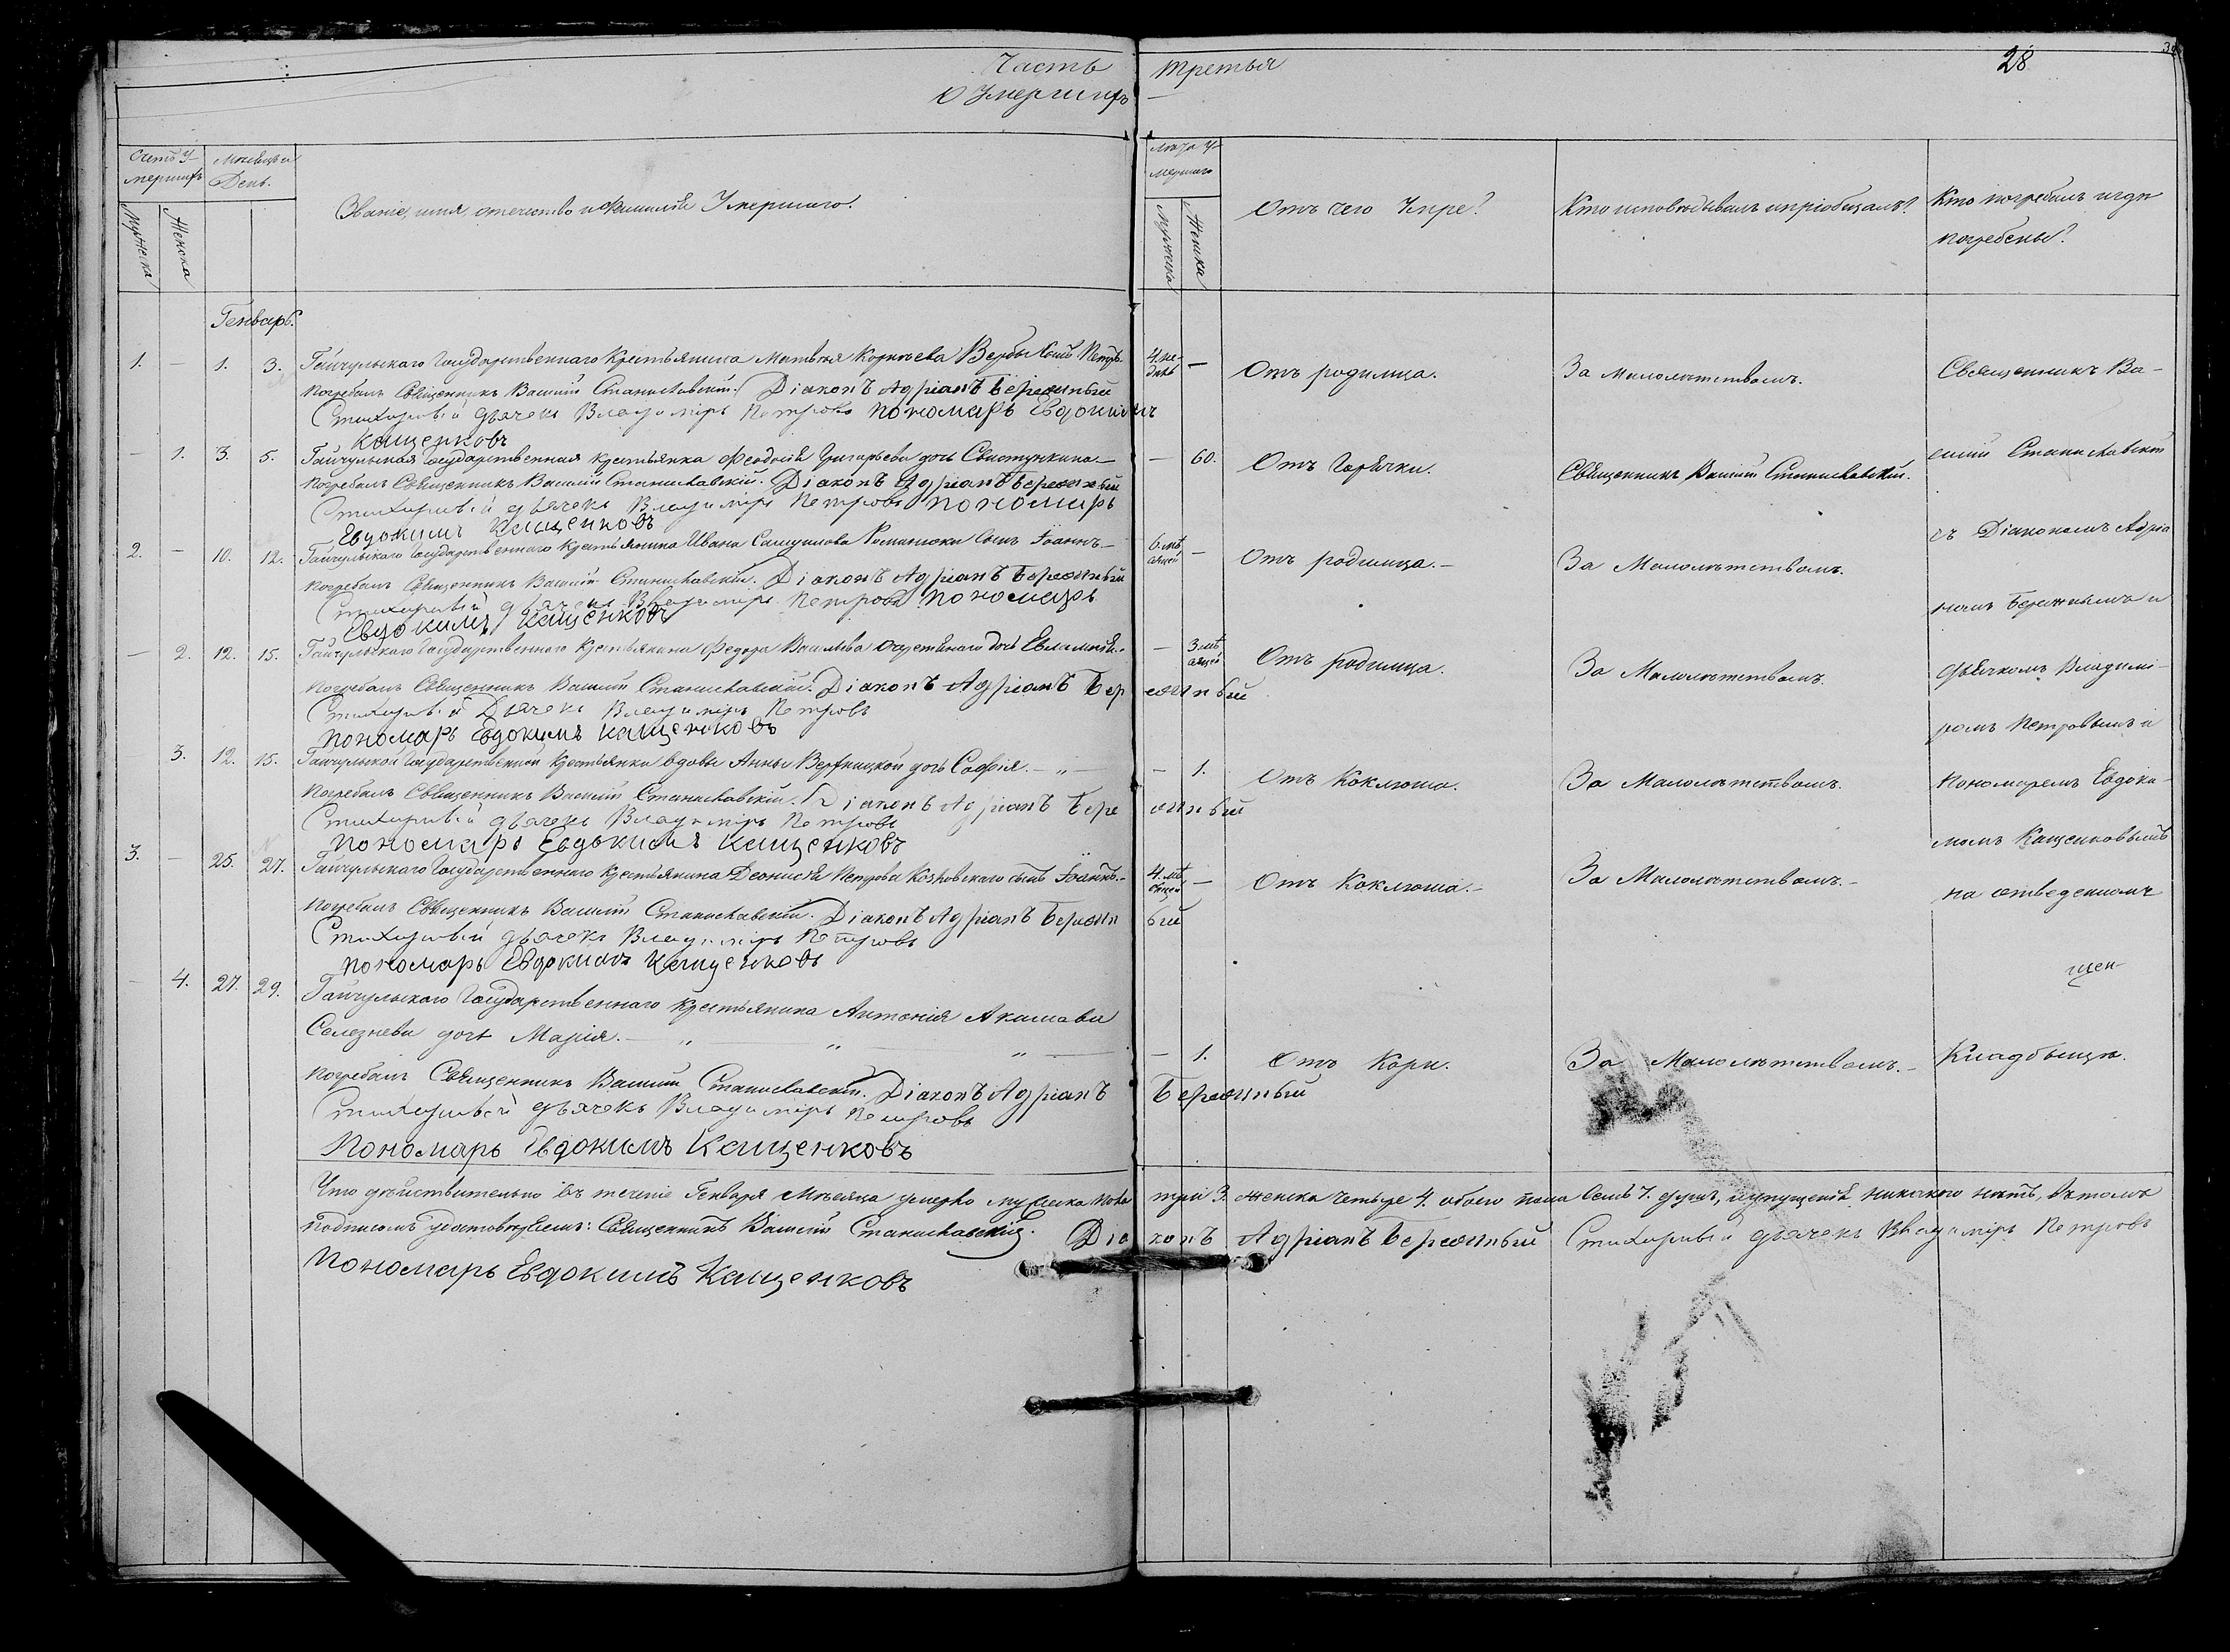 Часть третья
28
О Умершихъ
Счетъ Умершихъ
Мѣсяцъ и День.
Званіе, имя, отечество и фамилія Умершаго.
Лѣта Умершаго
Отъ чего Умре?
Кто исповѣдывалъ и пріобщалъ?
Кто погребалъ и гдѣ погребены?
Мужеска
Женска
Мужеска
Женска
Генварь.
1. — 1. 3. Гайчульскаго Государственнаго Крестьянина Матвѣя Корнѣева Вербы сынъ Петръ.
4. недѣль —
Отъ родимца.
За малолѣтствомъ.
Священникъ Ва-
Погребалъ Священникъ Василій Станиславскій. Діаконъ Адріанъ Бережный
Стихарный дьячекъ Владиміръ Петровъ пономарь Евдокимъ
Кащенковъ
— 1. 3. 5. Гайчульская Государственная крестьянка Феодосія Григорьева дочь Свистункина —
— 60.
Отъ Горячки.
Священникъ Василій Станиславскій.
силій Станиславскій
Погребалъ Священникъ Василій Станиславскій. Діаконъ Адріанъ Бережный
Стихарный дьячекъ Владиміръ Петровъ пономарь
Евдокимъ Кащенковъ
2. — 10. 12. Гайчульскаго Государственнаго Крестьянина Ивана Самуилова сынъ Іоаннъ. —
6. мѣсяцей —
Отъ родимца. —
За Малолѣтствомъ.
съ Діакономъ Адріа
Погребалъ Священникъ Василій Станиславскій. Діаконъ Адріанъ Бережный
Стихарный дьячекъ Владиміръ Петровъ пономарь
Евдокимъ Кащенковъ
номъ Бережнымъ и
— 2. 12. 15. Гайчульскаго Государственнаго Крестьянина Федора Васильева дочь Евлампія.
— 3. мѣсяцей
Отъ родимца.
За Малолѣтствомъ.
дьячкомъ Владимі-
Погребалъ Священникъ Василій Станиславскій. Діаконъ Адріанъ Бережный
Стихарный Дьячекъ Владиміръ Петровъ
пономарь Евдокимъ Кащенковъ
ромъ Петровымъ и
3. 12. 15. Гайчульской Государственной Крестьянки вдовы Анны Вербицкой дочь Софія. — „ —
— 1.
Отъ Коклюша.
За Малолѣтствомъ.
Пономаремъ Евдоки-
Погребалъ Священникъ Василій Станиславскій. Діаконъ Адріанъ Бережный
Стихарный дьячекъ Владиміръ Петровъ
пономарь Евдокимъ Кащенковъ
момъ Кащенковымъ
3. — 25. 27. Гайчульскаго Государственнаго Крестьянина Деонисія Петрова Козловскаго сынъ Іоаннъ. —
4. мѣсяцей —
Отъ Коклюша. —
За Малолѣтствомъ. —
на отведенномъ
Погребалъ Священникъ Василій Станиславскій. Діаконъ Адріанъ Бережный
Стихарный дьячекъ Владиміръ Петровъ
пономарь Евдокимъ Кащенковъ
— 4. 27. 29. Гайчульскаго Государственнаго Крестьянина Антонія Акимова
Селезнева дочь Марія. — „ — „ — „ —
— 1.
Отъ Кори.
За Малолѣтствомъ. —
Кладбищѣ.
Погребалъ Священникъ Василій Станиславскій. Діаконъ Адріанъ Бережный
Стихарный дьячекъ Владиміръ Петровъ
Пономарь Евдокимъ Кащенковъ
Что дѣйствительно въ теченіе Генваря Мѣсяца умерло мужеска пола три 3. женска четыре 4. обоего пола семь 7. душъ, и упущенія никакого нѣтъ, въ томъ
Подписомъ удостовѣряемъ: Священникъ Василій Станиславскій. Діаконъ Адріанъ Бережный Стихарный дьячекъ Владиміръ Петровъ
Пономарь Евдокимъ Кащенковъ